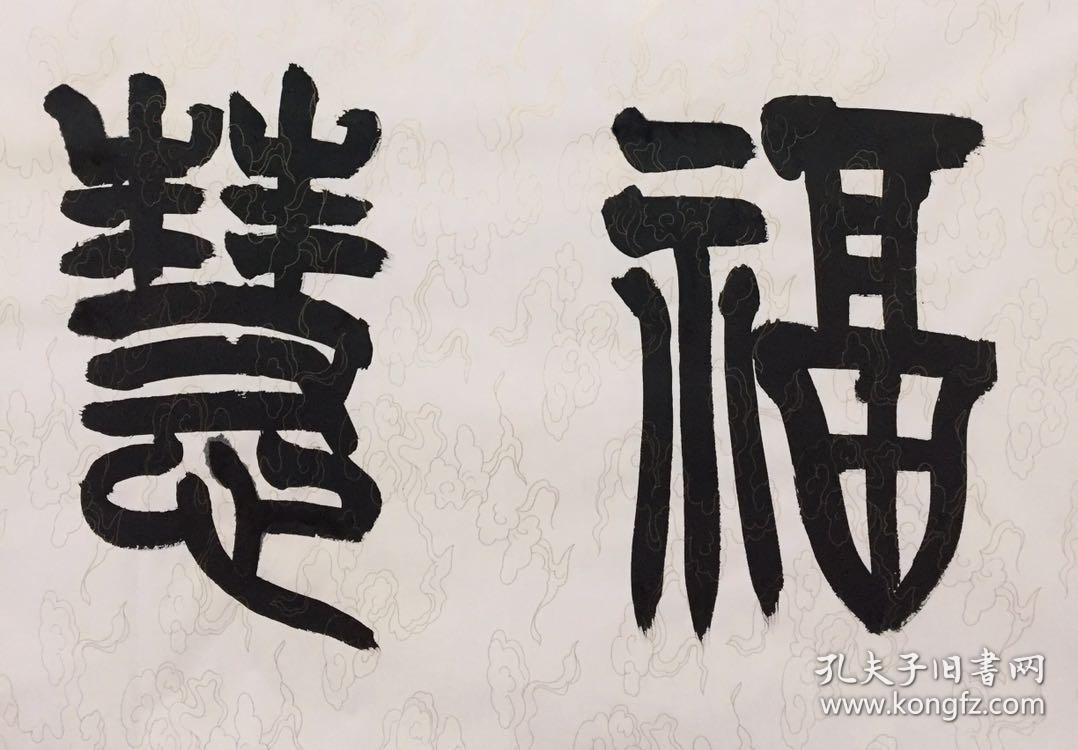 福慧
孔夫子旧書网
www.kongfz.com